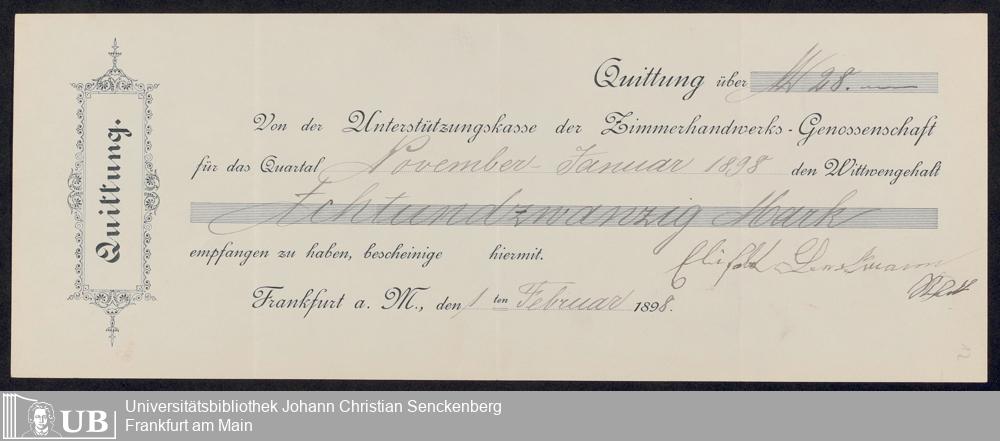 Quittung.
Quittung über M 28.
Von der Unterstützungskasse der Zimmerhandwerks-Genossenschaft
für das Quartal November-Januar 1898 den Wittwengehalt
Achtundzwanzig Mark
empfangen zu haben, bescheinige hiermit.
Frankfurt a. M., den 1 ten Februar 1898.
12
UB
Universitätsbibliothek Johann Christian Senckenberg
Frankfurt am Main